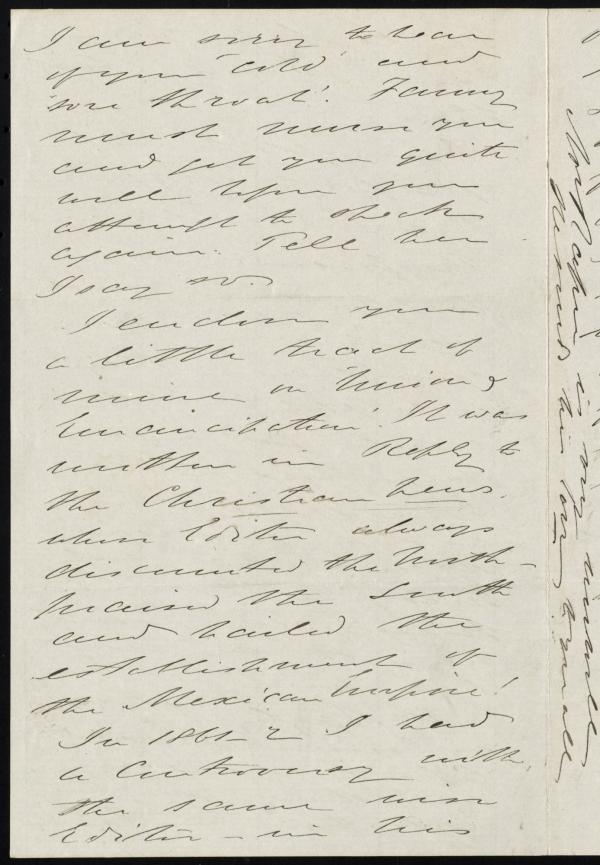 I am sorry to hear
of your 'cold' and
'sore throat'. Fanny
must nurse you
and get you quite
well before you
attempt to speak
again. Tell her
I say so.
I enclose you
a little tract of
mine on 'Union &
Emancipation'. It was
written in Reply to
the Christian News.
whose Editor always
discounted the North -
praised the South
and hailed the
establishment of
the Mexican Empire!
In 1861-2 I had
a Controversy with
the same wise
Editor - in his
is my